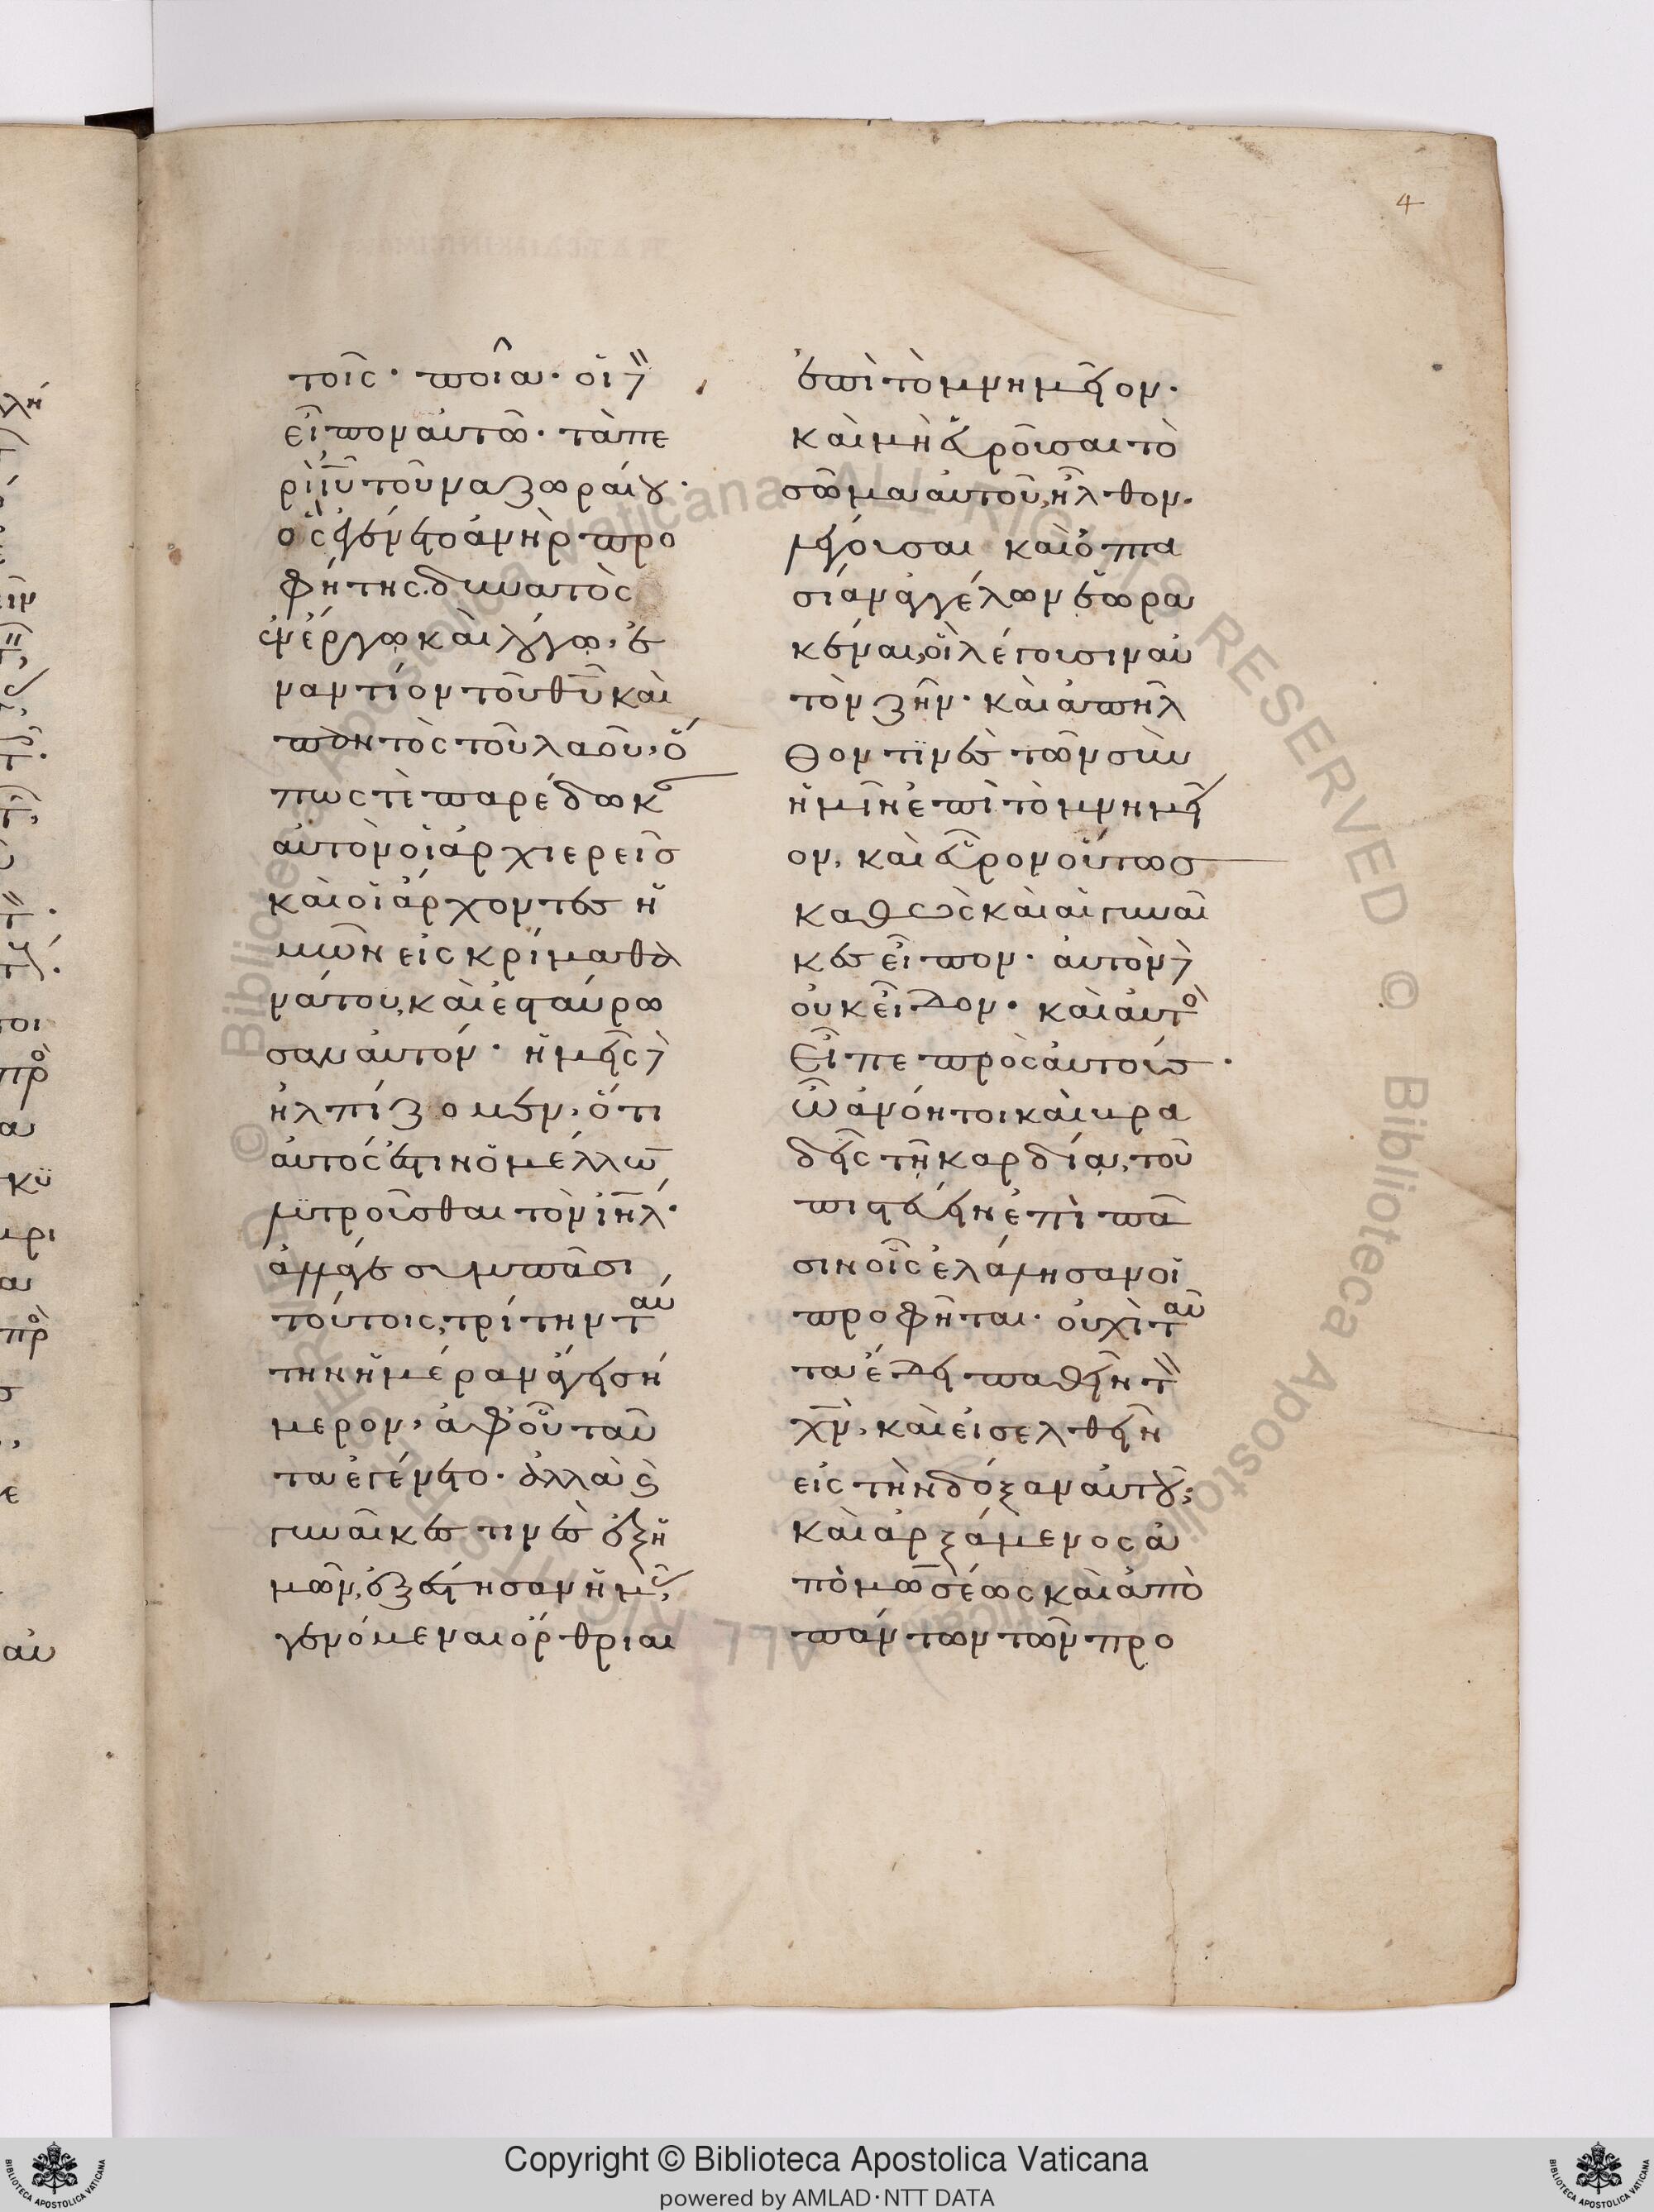 4
τοῖς· ποῖα· οἱ δὲ
εἶπον αὐτῶ· τὰ πε
ρὶ ἰυ τοῦ ναζωραίου·
ὃς ἐγένετο ἀνὴρ προ
φήτης δυνατὸς
ἐν ἔργω καὶ λόγω, ἐ
ναντίον τοῦ θυ καὶ
παντὸς τοῦ λαοῦ, ὅ
πως τὲ παρέδωκαν
αὐτὸν οἱ ἀρχιερεῖσ
καὶ οἱ ἄρχοντες ἡ
μῶν εἰς κρίμα θα
νάτου, καὶ ἐσταύρω
σαν αὐτόν· ἡμεῖς δὲ
ἠλπίζομεν, ὅτι
αὐτός ἐστιν ὁ μέλλων
λυτροῦσθαι τὸν ἰηλ·
ἀλλάγε σὺν πᾶσι
τούτοις, τρίτην ταύ
την ἡμέραν ἄγει σή
μερον, ἀφοῦ ταῦ
τα ἐγένετο· ἀλλὰ καὶ
γυναῖκες τινὲς ἐξ ἡ
μῶν, ἐξέστησαν ἡμᾶς,
γενόμεναι ὄρθριαι
ἐπὶ τὸ μνημεῖον·
καὶ μὴ εὑροῦσαι τὸ
σῶμα αὐτοῦ, ἦλθον
λέγουσαι καὶ ὀπτα
σίαν ἀγγέλων ἑωρα
κέναι, οἳ λέγουσιν αὐ
τὸν ζῆν· καὶ ἀπῆλ
θον τινὲς τῶν σὺν
ἡμῖν ἐπὶ τὸ μνημεῖ
ον, καὶ εὗρον οὕτωσ
καθὼς καὶ αἱ γυναῖ
κες εἶπον· αὐτὸν δὲ
οὐκ εἶδον· καὶ αὐτὸς
εἶπε πρὸς αὐτούς·
ὦ ἀνόητοι καὶ βρα
δεῖς τῆ καρδία, τοῦ
πιστεύειν ἐπὶ πᾶ
σιν οἷς ἐλάλησαν οἱ
προφῆται· οὐχὶ ταῦ
τα ἔδει παθεῖν τὸν
χν, καὶ εἰσελθεῖν
εἰς τὴν δόξαν αὐτοῦ;
καὶ ἀρξάμενος ἀ
πὸ μωσέως καὶ ἀπὸ
πάντων τῶν προ
© Biblioteca Apostolica Vaticana ALL RIGHTS RESERVED
Copyright © Biblioteca Apostolica Vaticana
powered by AMLAD·NTT DATA